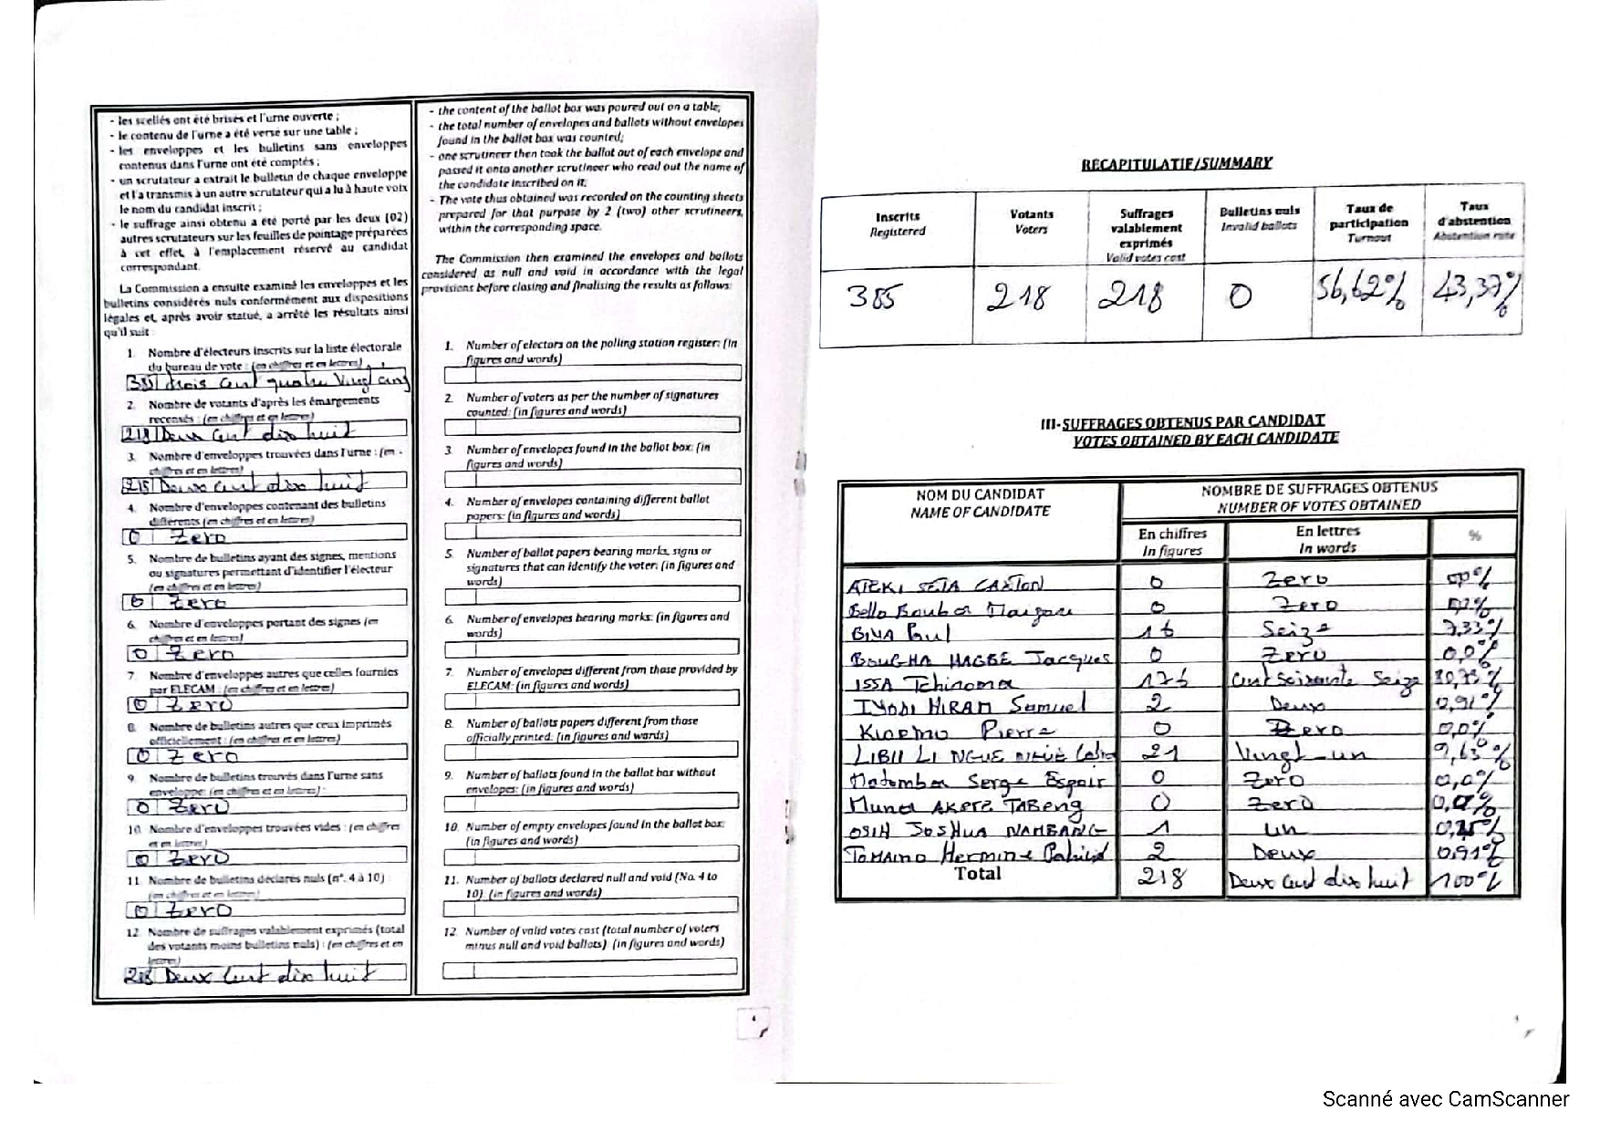 - les scellés ont été brisés et l'urne ouverte ;
- le contenu de l'urne a été versé sur une table ;
- les enveloppes et les bulletins sans enveloppes
contenus dans l'urne ont été comptés ;
- un scrutateur a extrait le bulletin de chaque enveloppe
et l'a transmis à un autre scrutateur qui a lu à haute voix
le nom du candidat inscrit ;
- le suffrage ainsi obtenu a été porté par les deux (02)
autres scrutateurs sur les feuilles de pointage préparées
à cet effet, à l'emplacement réservé au candidat
correspondant.
La Commission a ensuite examiné les enveloppes et les
bulletins considérés nuls conformément aux dispositions
légales et, après avoir statué, a arrêté les résultats ainsi
qu'il suit :
1. Nombre d'électeurs inscrits sur la liste électorale
du bureau de vote : (en chiffres et en lettres)
385 trois cent quatre vingt cinq
2. Nombre de votants d'après les émargements
recensés : (en chiffres et en lettres)
218 Deux cent dix huit
3. Nombre d'enveloppes trouvées dans l'urne : (en
chiffres et en lettres)
218 Deux cent dix huit
4. Nombre d'enveloppes contenant des bulletins
différents (en chiffres et en lettres)
0 Zero
5. Nombre de bulletins ayant des signes, mentions
ou signatures permettant d'identifier l'électeur
(en chiffres et en lettres)
0 Zero
6. Nombre d'enveloppes portant des signes (en
chiffres et en lettres)
0 Zero
7. Nombre d'enveloppes autres que celles fournies
par ELECAM : (en chiffres et en lettres)
0 Zero
8. Nombre de bulletins autres que ceux imprimés
officiellement : (en chiffres et en lettres)
0 Zero
9. Nombre de bulletins trouvés dans l'urne sans
enveloppe: (en chiffres et en lettres) :
0 Zero
10. Nombre d'enveloppes trouvées vides : (en chiffres
et en lettres)
0 Zero
11. Nombre de bulletins déclarés nuls (n°. 4 à 10) :
(en chiffres et en lettres)
0 Zero
12. Nombre de suffrages valablement exprimés (total
des votants moins bulletins nuls) : (en chiffres et en
lettres)
218 Deux cent dix huit
- the content of the ballot box was poured out on a table;
- the total number of envelopes and ballots without envelopes
found in the ballot box was counted;
- one scrutineer then took the ballot out of each envelope and
passed it onto another scrutineer who read out the name of
the candidate inscribed on it;
- The vote thus obtained was recorded on the counting sheets
prepared for that purpose by 2 (two) other scrutineers,
within the corresponding space.
The Commission then examined the envelopes and ballots
considered as null and void in accordance with the legal
provisions before closing and finalising the results as follows:
1. Number of electors on the polling station register: (in
figures and words)
2. Number of voters as per the number of signatures
counted: (in figures and words)
3. Number of envelopes found in the ballot box: (in
figures and words)
4. Number of envelopes containing different ballot
papers: (in figures and words)
5. Number of ballot papers bearing marks, signs or
signatures that can identify the voter: (in figures and
words)
6. Number of envelopes bearing marks: (in figures and
words)
7. Number of envelopes different from those provided by
ELECAM: (in figures and words)
8. Number of ballots papers different from those
officially printed: (in figures and words)
9. Number of ballots found in the ballot box without
envelopes: (in figures and words)
10. Number of empty envelopes found in the ballot box:
(in figures and words)
11. Number of ballots declared null and void (No. 4 to
10) (in figures and words)
12. Number of valid votes cast (total number of voters
minus null and void ballots) (in figures and words)
RECAPITULATIF/SUMMARY
Inscrits Registered Votants Voters Suffrages valablement exprimés Valid votes cast Bulletins nuls Invalid ballots Taux de participation Turnout Taux d'abstention Abstention rate
385 218 218 0 56,62% 43,37%
III-SUFFRAGES OBTENUS PAR CANDIDAT
VOTES OBTAINED BY EACH CANDIDATE
NOM DU CANDIDAT NAME OF CANDIDATE
NOMBRE DE SUFFRAGES OBTENUS
NUMBER OF VOTES OBTAINED
En chiffres In figures En lettres In words %
ATEKI SETA CAXTON 0 Zero
Bello Bouba Maigari 0 Zero
BIYA Paul 16 Seize 7,33%
BOUGHA HAGBE Jacques 0 Zero 0,0%
ISSA Tchiroma 176 Cent Soixante Seize 80,73%
IYODI HIRAM Samuel 2 Deux 0,91%
Kwemo Pierre 0 Zero 0,0%
LIBII LI NGUE NGUE Cabral 21 Vingt-un 9,63%
Matomba Serge Espoir 0 Zero 0,0%
Muna AKERE TABENG 0 Zero 0,0%
OSIH JOSHUA NAMBANG 1 un
TOMAINO Hermine Patricia 2 Deux 0,91%
Total 218 Deux cent dix huit 100%
Scanné avec CamScanner